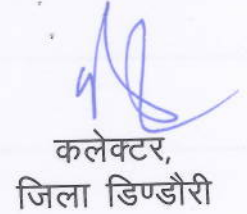 कलेक्टर,
जिला डिण्डौरी